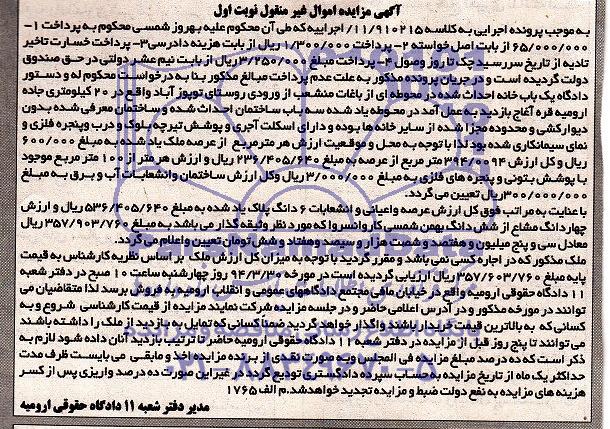 آگهی مزایده اموال غیر منقول نوبت اول
به موجب پرونده اجرایی به کلاسه ۱۱/۹۱۰۲۱۵ اجراییه که طی آن محکوم علیه بهروز شمسی محکوم به پرداخت ۱-
۶۵/۰۰۰/۰۰۰ از بابت اصل خواسته ۲- پرداخت ۱/۳۰۰/۰۰۰ ریال از بابت هزینه دادرسی ۳- پرداخت خسارت تاخیر
تادیه از تاریخ سررسید چک تا روز وصول ۴- پرداخت مبلغ ۳/۲۵۰/۰۰۰ ریال از بابت نیم عشر دولتی در حق صندوق
دولت گردیده است و در جریان پرونده مذکور به علت عدم پرداخت مبالغ مذکور بنا به درخواست محکوم له و دستور
دادگاه یک باب خانه احداث شده در محوطه ای از باغات منشعب از ورودی روستای توپوز آباد واقع در ۲۰ کیلومتری جاده
ارومیه قره آغاج بازدید به عمل آمد در محوطه یاد شده سه باب ساختمان احداث شده و ساختمان معرفی شده بدون
دیوارکشی و محدوده مجزا شده از سایر خانه ها بوده و دارای اسکلت آجری و پوشش تیرچه بلوک و درب و پنجره فلزی و
نمای سیمانکاری شده بود لذا با توجه به محل و موقعیت ارزش هر مترمربع از عرصه ملک یاد شده به مبلغ ۶۰۰/۰۰۰
ریال و کل ارزش ۳۹۴/۰۰۹۴ متر مربع از عرصه به مبلغ ۲۳۶/۴۰۵/۶۴۰ ریال و ارزش هر متر از ۱۰۰ متر مربع موجود
با پوشش بتونی و پنجره های فلزی به مبلغ ۳/۰۰۰/۰۰۰ ریال و کل ارزش ساختمان و انشعابات آب و برق به مبلغ
۳۰۰/۰۰۰/۰۰۰ ریال تعیین می گردد.
با عنایت به مراتب فوق کل ارزش عرصه و اعیانی و انشعابات ۶ دانگ پلاک یاد شده به مبلغ ۵۳۶/۴۰۵/۶۴۰ ریال و ارزش
چهار دانگ مشاع از شش دانگ بهمن شمسی کار وانسرا که مورد نظر وثیقه گذار می باشد به مبلغ ۳۵۷/۹۰۳/۷۶۰ ریال
معادل سی و پنج میلیون و هفتصد و شصت هزار و سیصد و هفتاد و شش تومان تعیین و اعلام می گردد.
ملک مذکور که در اجاره کسی نمی باشد و مقرر گردید با توجه به میزان کل ارزش ملک بر اساس نظریه کارشناسی به قیمت
پایه مبلغ ۳۵۷/۶۰۳/۷۶۰ ریال ارزیابی گردیده است در مورخه ۹۴/۳/۳۰ روز چهارشنبه ساعت ۱۰ صبح در دفتر شعبه
۱۱ دادگاه حقوقی ارومیه واقع در خیابان مافی مجتمع دادگاههای عمومی و انقلاب ارومیه به فروش برسد لذا متقاضیان می
توانند در مورخه مذکور و در آدرس اعلامی حاضر و در جلسه مزایده شرکت نمایند مزایده از قیمت کارشناسی شروع و به
کسانی که به بالاترین قیمت خریدار باشند واگذار خواهد گردید ضمنا کسانی که مایل به بازدید از ملک را داشته باشند
می توانند تا پنج روز قبل از مزایده در دفتر شعبه ۱۱ دادگاه حقوقی ارومیه حاضر تا ترتیب بازدید آنان داده شود لازم به
ذکر است که ده درصد مبلغ مزایده فی المجلس و به صورت نقدی از برنده مزایده اخذ و مابقی می بایست ظرف مدت
حداکثر یک ماه از تاریخ مزایده به حساب سپرده دادگستری تودیع گردد در غیر این صورت ده درصد واریزی پس از کسر
هزینه های مزایده به نفع دولت ضبط و مزایده تجدید خواهد شد. م الف ۱۷۶۵
مدیر دفتر شعبه ۱۱ دادگاه حقوقی ارومیه
۰۲۱-۸۸۳۴۹۶۷۰-۵